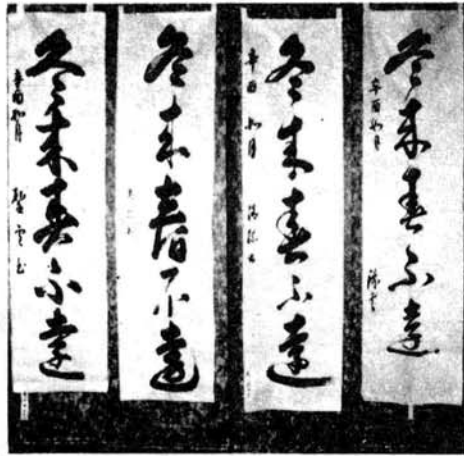 冬来春不遠
辛酉如月
冬来春不遠
辛酉 如月
冬来春不遠
冬来春不遠
辛酉 如月